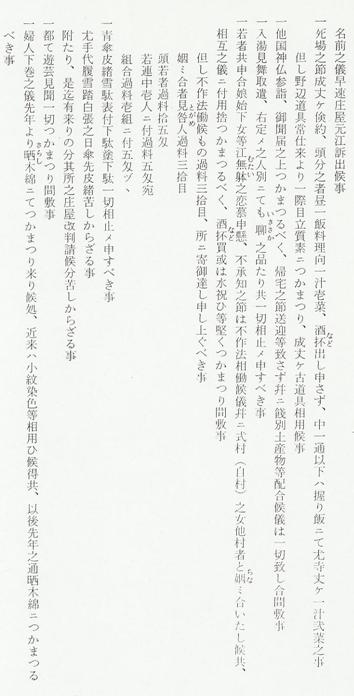 名前之儀早速庄屋元江訴出候事
一死場之節成丈ケ倹約、頭分之者昼一飯料理向一汁壱菜、酒抔など出し申さず、中一通以下ハ握り飯ニて尤寺丈ケ一汁弐菜之事
但し野辺道具常仕来より一際目立質素ニつかまつり、成丈ケ古道具相用候事
一他国神仏参詣、御聞届之上つかまつるべく、帰宅之節送迎等致さず幷ニ餞別土産物等配合候儀は一切致し合間敷事
一入湯見舞取遣、右定メ之人別ニても聊いささか之品たり共一切相止メ申すべき事
一若者共申合娘始下女等江無躰むたい之恋慕申懸、不承知之節は不作法相働候儀幷ニ弐村（自村）之女他村者と姻ちなミ合いたし候共、
相互之儀ニ付用捨つかまつるべく、酒抔など買或は水祝ひ等堅くつかまつり間敷事
但し不作法働候もの過料三拾目、所ニ寄御達し申し上ぐべき事
姻ミ合者見咎とがめ人過料三拾目
頭若者過料拾五匁
若連中壱人ニ付過料五匁宛
組合過料壱組ニ付五匁ツヽ
一青傘皮緒雪駄表付下駄塗下駄一切相止メ申すべき事
尤手代履雪踏白張之日傘先皮緒苦しからざる事
附たり、是迄有来りの分其所之庄屋改判請候分苦しからざる事
一都て遊芸見聞一切つかまつり間敷事
一婦人下巻之儀先年より晒さらし木綿ニてつかまつり来り候処、近来ハ小紋染色等相用ひ候得共、以後先年之通晒木綿ニつかまつる
べき事